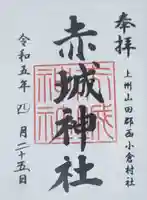 奉拝
上州山田郡西小倉村社
赤城神社
令和五年四月二十五日